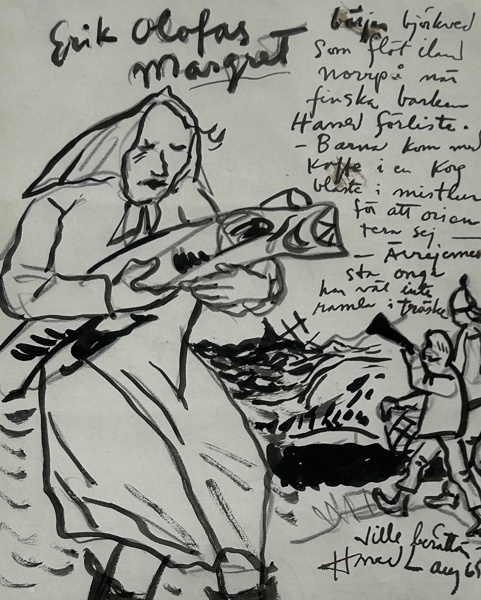 Erik Olofas
Margret
början björkved
som flöt iland
norrpå när
finska barken
Hanna förliste.
- Barna kom med
Kaffe i en Korg
blåste i
för att orien
tera sej —
- 
sta onga
har väl inte
ramla i träske
Ville berätta
aug 65